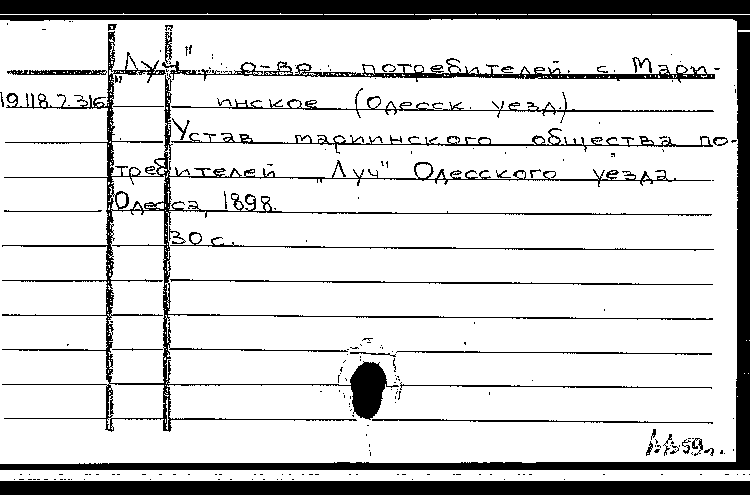 "Луч", о-во потребителей. с. Мари-
19.118.2.316 инское (Одесск. уезд).
Устав мариинского общества по-
требителей "Луч" Одесского уезда.
Одесса, 1898.
30 с.